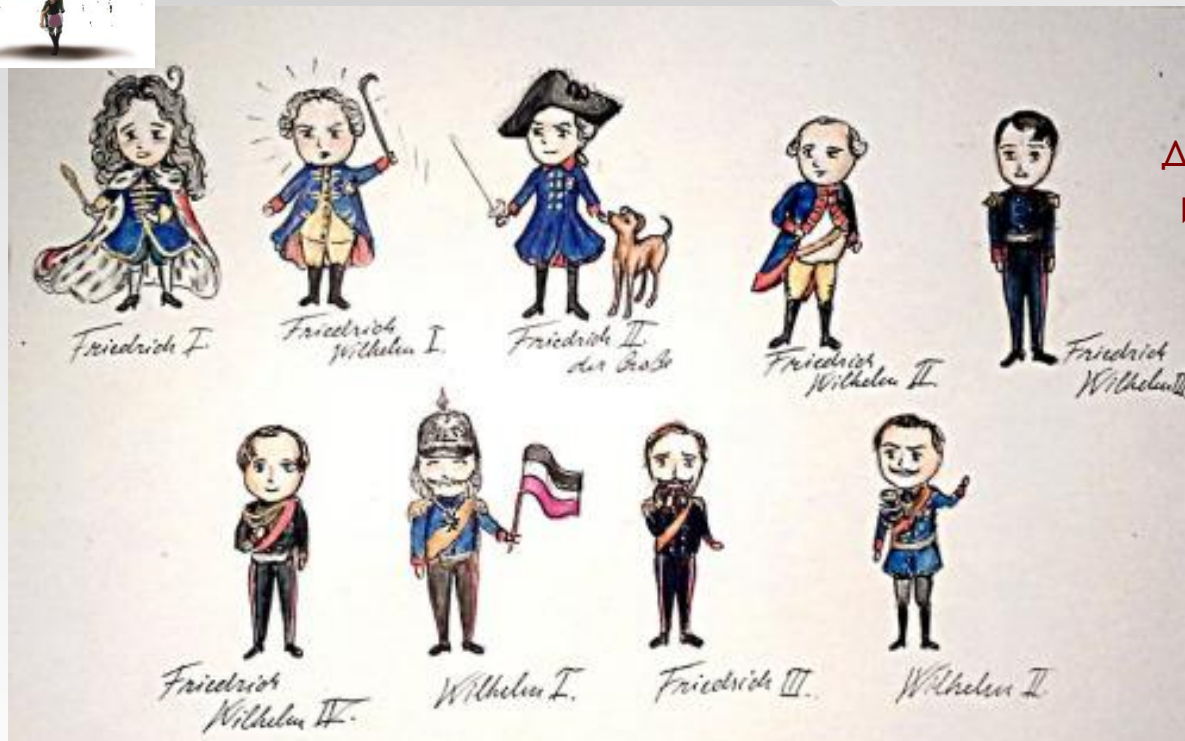 Friedrich I.
Friedrich
Wilhelm I.
Friedrich II.
der Große
Friedrich
Wilhelm II.
Friedrich
Wilhelm III
Friedrich
Wilhelm IV.
Wilhelm I.
Friedrich III.
Wilhelm II